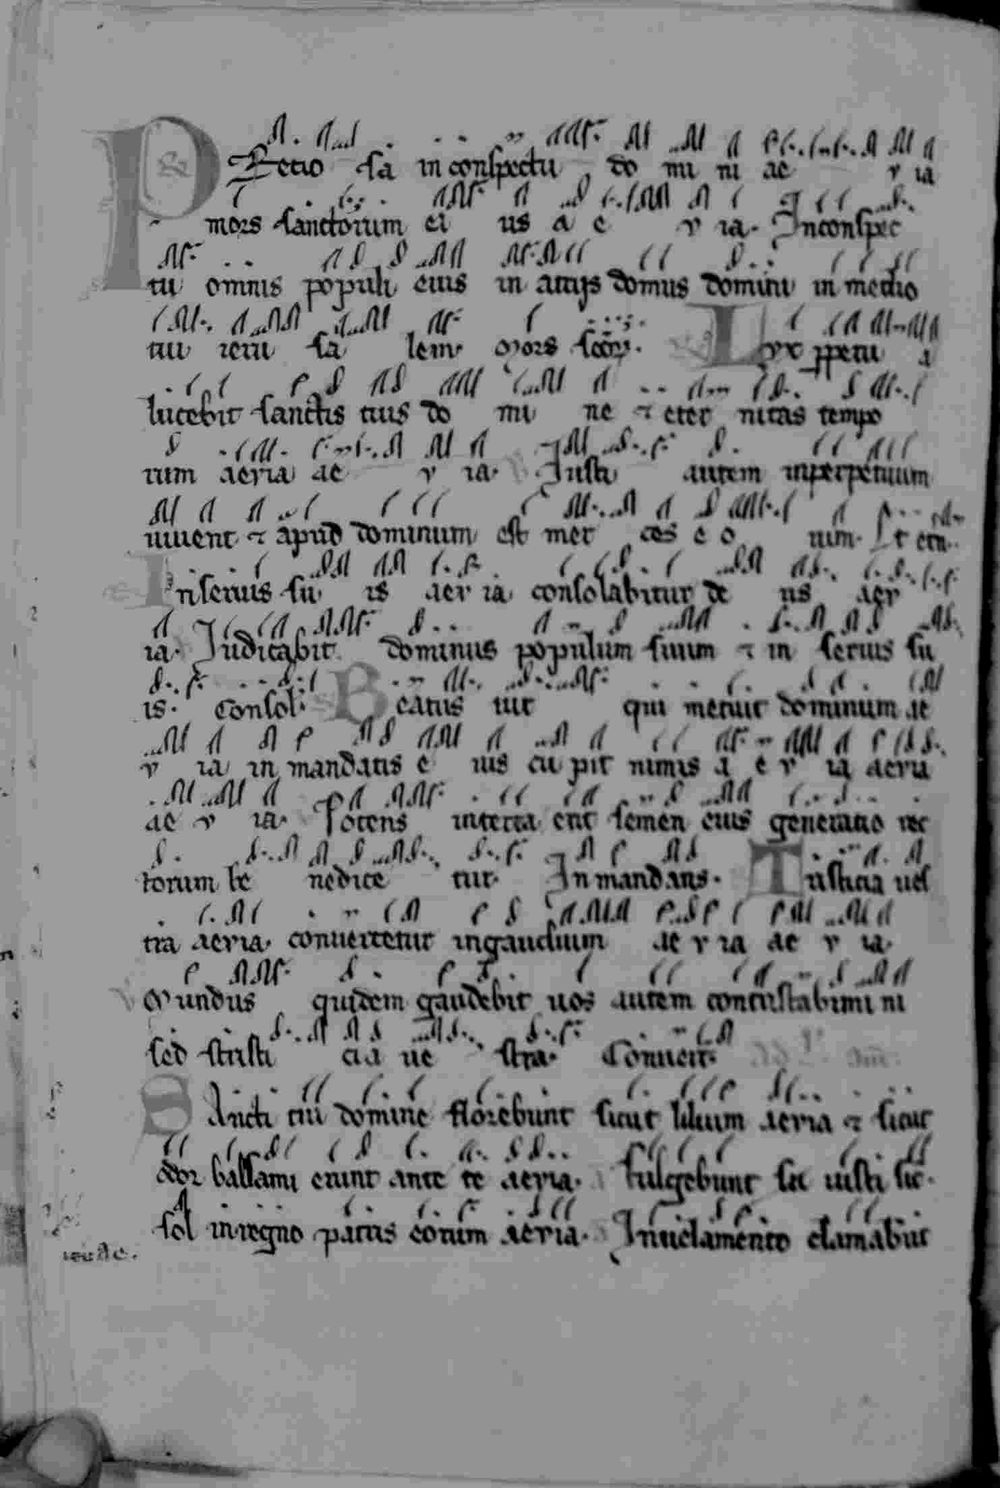 Preciosa in conspectu do mi ni ae v ia
mors sanctorum ei us a e v ia. In conspec
tu omnis populi eius in atrijs domus domini in medio
tui ieru sa lem. Mors scōrꝝ. Lux ꝑpetu a
lucebit sanctis tuis do mi ne ⁊ eter nitas tempo
rum aevia ae v ia. Justi autem inperpetuum
uiuent ⁊ apud dominum est mer ces e o rum. Lux etn.
In seruis su is aev ia consolabitur de us aev
ia. Iudicabit dominus populum suum ⁊ in seruis su
is. Consol. Beatus uir qui metuit dominum ae
v ia in mandatis e ius cu pit nimis a e v ia aevia
ae v ia. Potens interra erit semen eius generatio rec
torum be nedice tur. In mandatis. Tristicia ues
tra aevia. conuertetur ingaudium ae v ia ae v ia.
Mundus quidem gaudebit uos autem contristabimi ni
sed tristi cia ue stra. Conuert.
Sancti tui domine florebunt sicut lilium aevia ⁊ sicut
odor balsami erunt ante te aevia. Fulgebunt iusti sic.
sol inregno patris eorum aevia. Inuelamento clamabūt